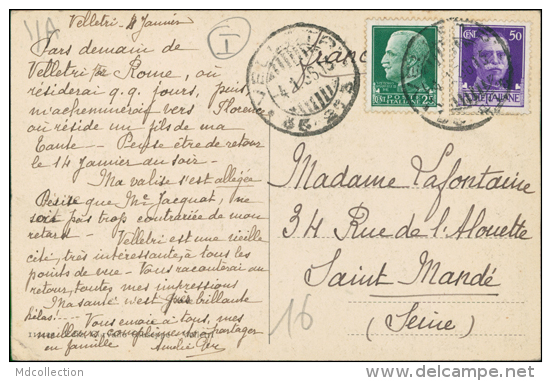 Velletri - 4 Janvier
Pars demain de
Velletri pr Rome, où
résiderai q.q. jours, puis,
m'acheminerai vers Florence
où réside un fils de ma
tante - Pense être de retour
le 14 Janvier au soir -
Ma valise s'est allégée
Désire que Mr Jacquat, ne
soit pas trop contrariée de mon
retard - Velletri est une vieille
cité, très intéressante, à tous les
points de vue - Vous raconterai au
retour, toutes mes impressions
Ma santé n'est guère brillante
hélas!...
Vous envoie à tous, mes
meilleurs compliments à partager
en famille
Amélie
I
POSTE
ITALIANE
CENT 25
CENT 50
POSTE ITALIANE
Madame Lafontaine
34 Rue de l'Alouette
Saint Mandé
(Seine)
16
Mdcollection
http://www.delcampe.net